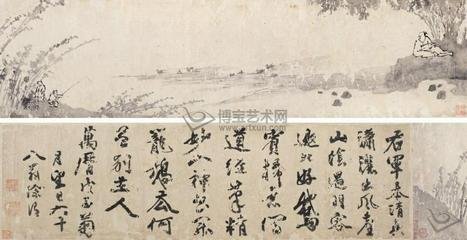 右軍本清真
瀟灑出風塵
山陰遇羽客
愛此好鵞
賓掃素寫
道經筆精
妙入神書罷
籠鵝去何
曾別主人
萬曆戊子菊
月望日八十
八翁
博宝艺术网